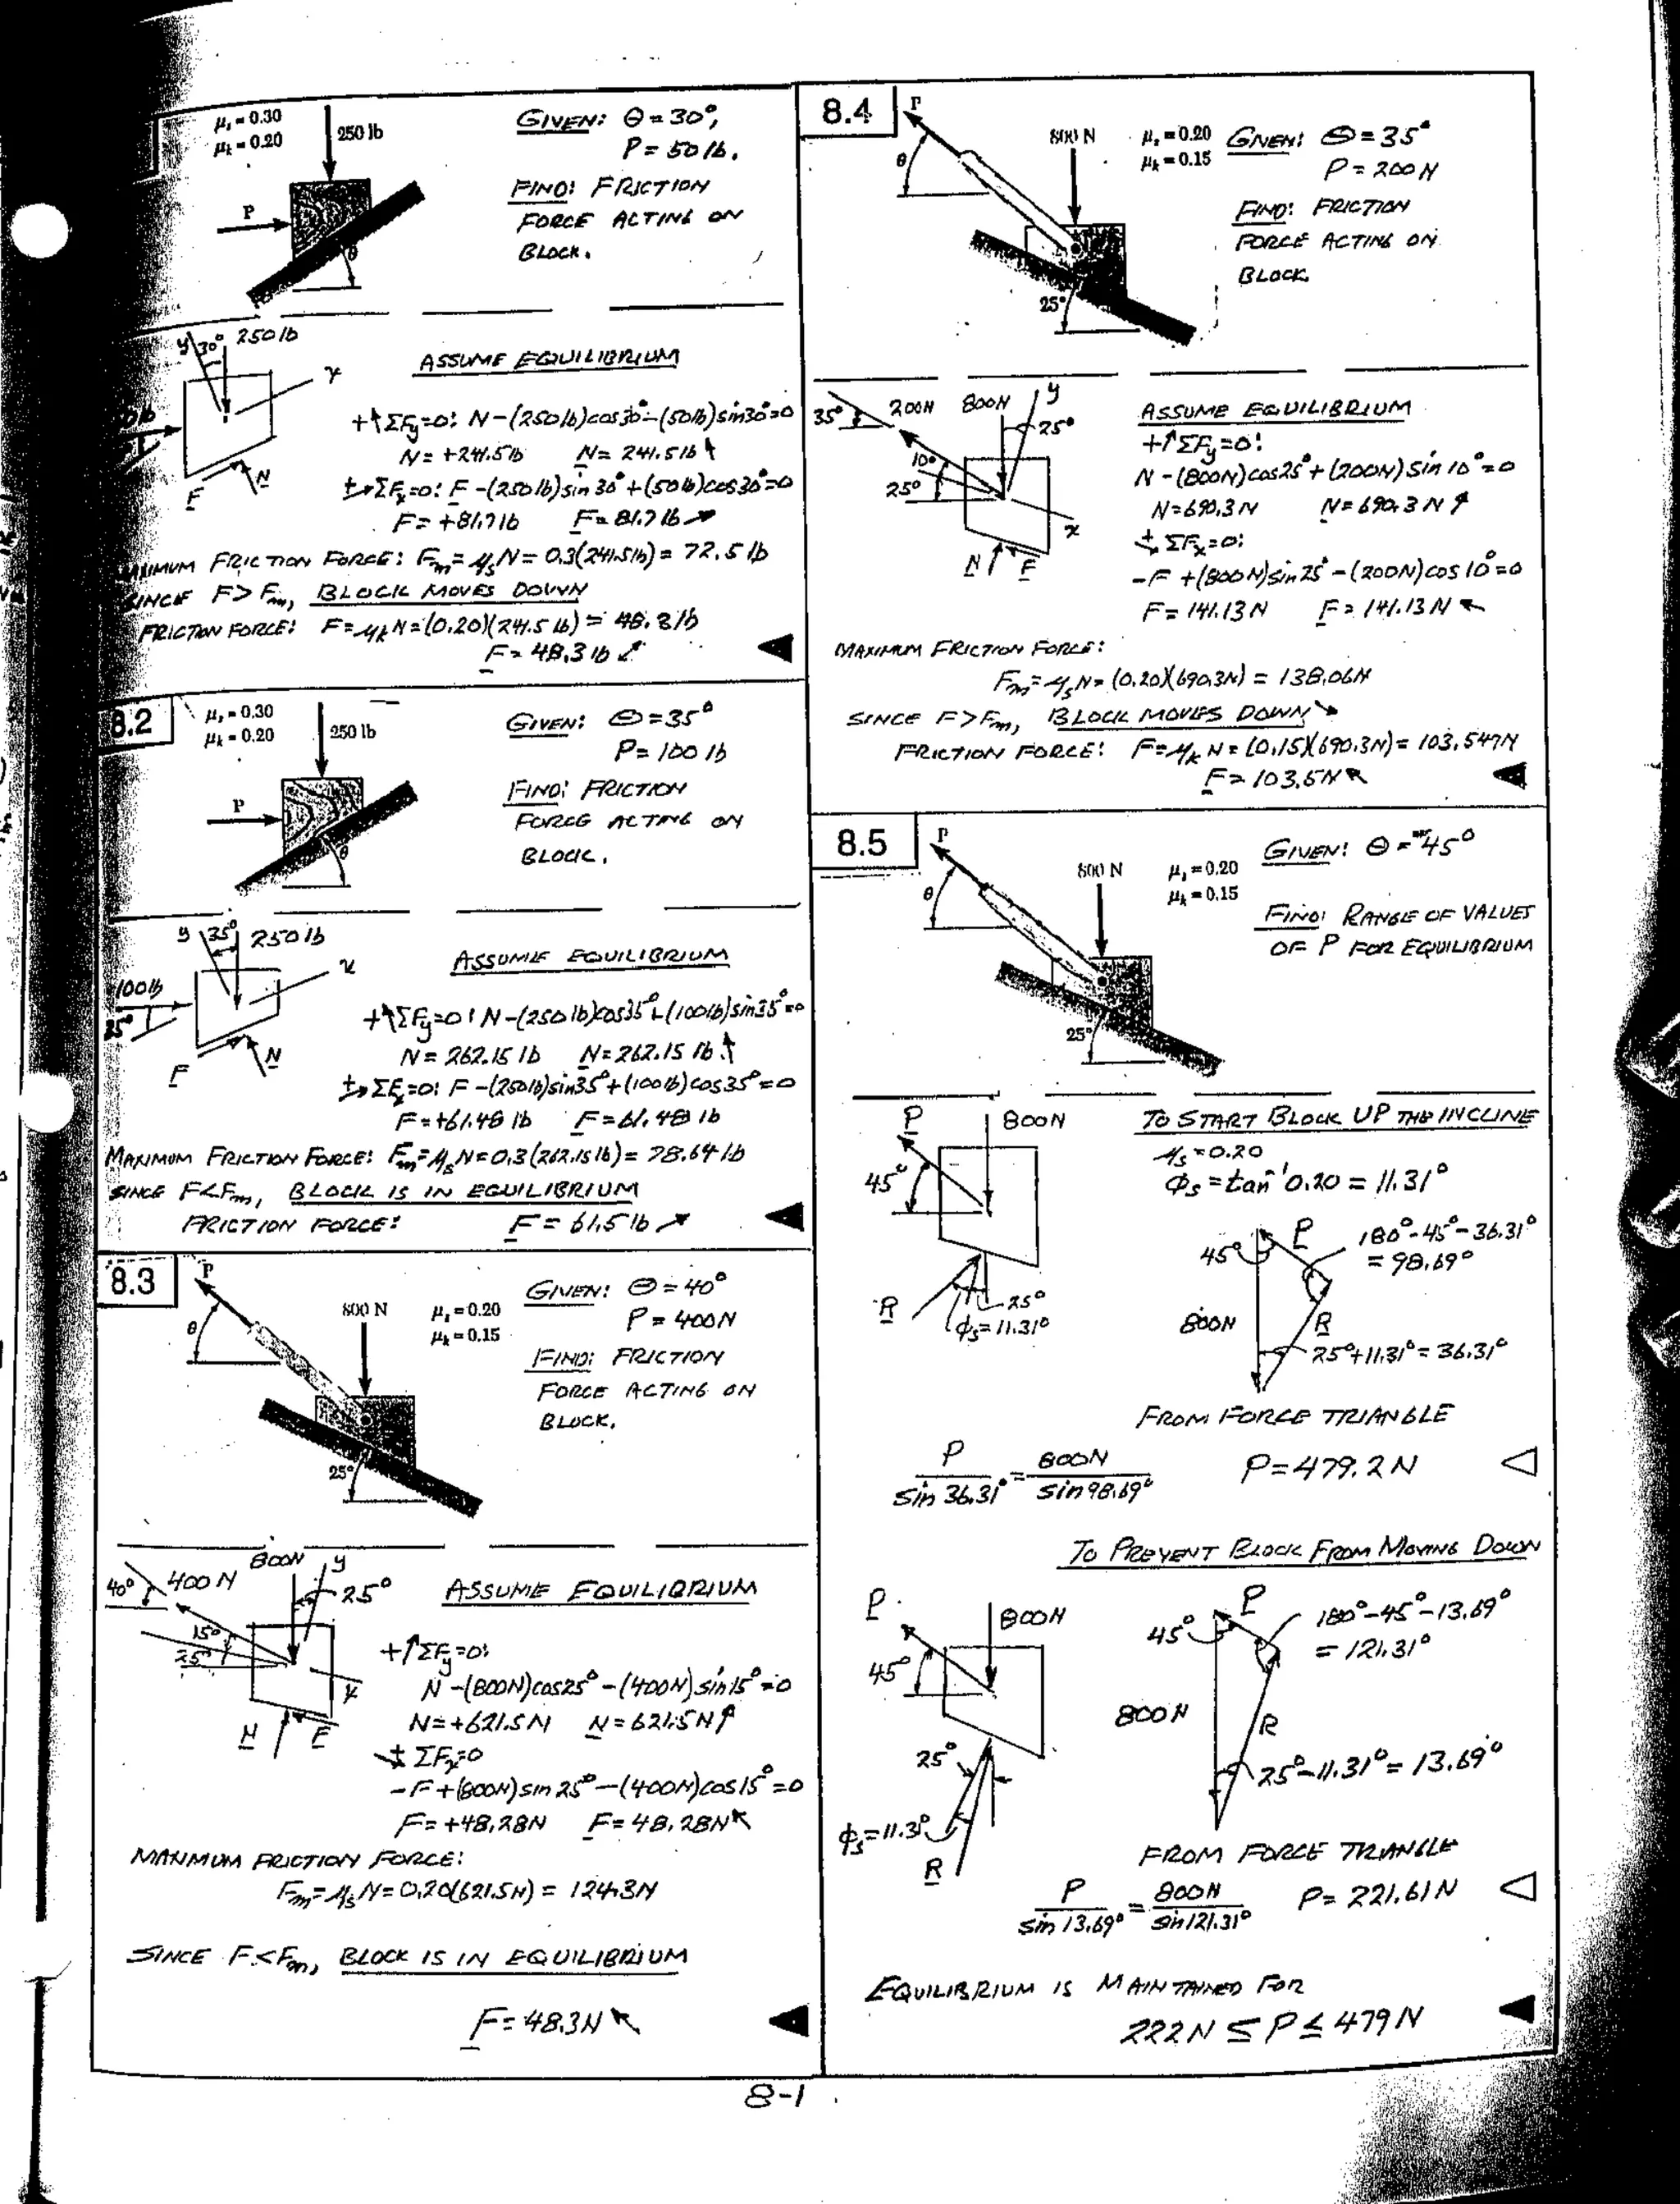 μs = 0.30
μk = 0.20
250 lb
P
θ
GIVEN: θ = 30°,
P = 50 lb.
FIND: FRICTION
FORCE ACTING ON
BLOCK.
y 30° 250 lb
x
F N
ASSUME EQUILIBRIUM
+↑ΣFy=0: N-(250 lb)cos30°-(50lb)sin30°=0
N = +241.5 lb N = 241.5 lb ↑
+→ΣFx=0: F-(250 lb)sin 30°+(50 lb)cos30°=0
F = +81.7 lb F = 81.7 lb ↗
MAXIMUM FRICTION FORCE: Fm = μsN = 0.3(241.5 lb) = 72.5 lb
SINCE F > Fm, BLOCK MOVES DOWN
FRICTION FORCE: F = μkN = (0.20)(241.5 lb) = 48.3 lb
F = 48.3 lb ↗
8.2
μs = 0.30
μk = 0.20
250 lb
P
θ
GIVEN: θ = 35°
P = 100 lb
FIND: FRICTION
FORCE ACTING ON
BLOCK.
y 35° 250 lb
x
100 lb
35°
F N
ASSUME EQUILIBRIUM
+↑ΣFy=0: N-(250 lb)cos35°-(100 lb)sin35°=0
N = 262.15 lb N = 262.15 lb ↑
+→ΣFx=0: F-(250 lb)sin35°+(100 lb)cos35°=0
F = +61.48 lb F = 61.48 lb
MAXIMUM FRICTION FORCE: Fm = μsN = 0.3(262.15 lb) = 78.64 lb
SINCE F < Fm, BLOCK IS IN EQUILIBRIUM
FRICTION FORCE: F = 61.5 lb ↗
8.3
P
θ
800 N
μs = 0.20
μk = 0.15
25°
GIVEN: θ = 40°
P = 400N
FIND: FRICTION
FORCE ACTING ON
BLOCK.
40° 400 N 800N y 25°
15°
25°
x
N F
ASSUME EQUILIBRIUM
+↑ΣFy=0:
N-(800N)cos25°-(400N)sin15°=0
N = +621.5 N N = 621.5 N ↑
+ ΣFx=0
-F+(800N)sin 25°-(400N)cos15°=0
F = +48.28N F = 48.28N ↖
MAXIMUM FRICTION FORCE:
Fm = μsN = 0.20(621.5N) = 124.3N
SINCE F < Fm, BLOCK IS IN EQUILIBRIUM
F = 48.3N ↖
8.4
P
θ
800 N
μs = 0.20
μk = 0.15
25°
GIVEN: θ = 35°
P = 200 N
FIND: FRICTION
FORCE ACTING ON
BLOCK.
35° 200N 800N y 25°
10°
25°
x
N F
ASSUME EQUILIBRIUM
+↑ΣFy=0:
N-(800N)cos25°+(200N)sin 10°=0
N = 690.3 N N = 690.3 N ↑
+ ΣFx=0:
-F+(800N)sin 25°-(200N)cos 10°=0
F = 141.13 N F = 141.13 N ↖
MAXIMUM FRICTION FORCE:
Fm = μsN = (0.20)(690.3N) = 138.06N
SINCE F > Fm, BLOCK MOVES DOWN ↘
FRICTION FORCE: F = μkN = (0.15)(690.3N) = 103.547N
F = 103.5N ↖
8.5
P
θ
800 N
μs = 0.20
μk = 0.15
25°
GIVEN: θ = 45°
FIND: RANGE OF VALUES
OF P FOR EQUILIBRIUM
TO START BLOCK UP THE INCLINE
P 800N
45°
R
25°
φs = 11.31°
μs = 0.20
φs = tan⁻¹ 0.20 = 11.31°
45° P 180°-45°-36.31°
= 98.69°
800N R
25°+11.31° = 36.31°
FROM FORCE TRIANGLE
P/sin 36.31° = 800N/sin 98.69° P = 479.2 N
TO PREVENT BLOCK FROM MOVING DOWN
P 800N
45°
25°
φs = 11.3°
R
45° P 180°-45°-13.69°
= 121.31°
800 N R
25°-11.31° = 13.69°
FROM FORCE TRIANGLE
P/sin 13.69° = 800N/sin 121.31° P = 221.61 N
EQUILIBRIUM IS MAINTAINED FOR
222N ≤ P ≤ 479 N
8-1